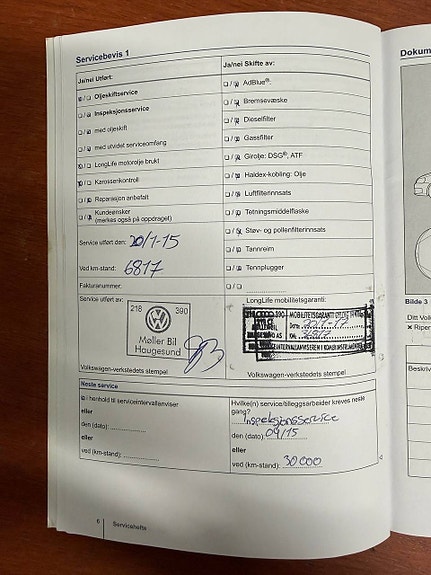 Servicebevis 1
Ja/nei Utført:
Ja/nei Skifte av:
Oljeskiftservice
AdBlue®.
Inspeksjonsservice
Bremsevæske
med oljeskift
Dieselfilter
med utvidet serviceomfang
Gassfilter
LongLife motorolje brukt
Girolje: DSG®, ATF
Karosserikontroll
Haldex-kobling: Olje
Reparasjon anbefalt
Luftfilterinnsats
Kundeønsker
(merkes også på oppdraget)
Tetningsmiddelflaske
Støv- og pollenfilterinnsats
Service utført den: 20/1-15
Tannreim
Ved km-stand: 6817
Tennplugger
Fakturanummer:
Service utført av:
LongLife mobilitetsgaranti:
218 390
Møller Bil
Haugesund
390 MOBILITETSGARANTI
Dato: 20/1-17
Volkswagen-verkstedets stempel
Volkswagen-verkstedets stempel
Neste service
i henhold til serviceintervallanviser
eller
den (dato):
eller
ved (km-stand):
Hvilke(n) service/tilleggsarbeider kreves neste
gang?
Inspeksjonsservice
den (dato): 04/15
eller
ved (km-stand): 30 000
6 Servicehefte
Dokum
Bilde 3
Ditt Volk
Beskriv